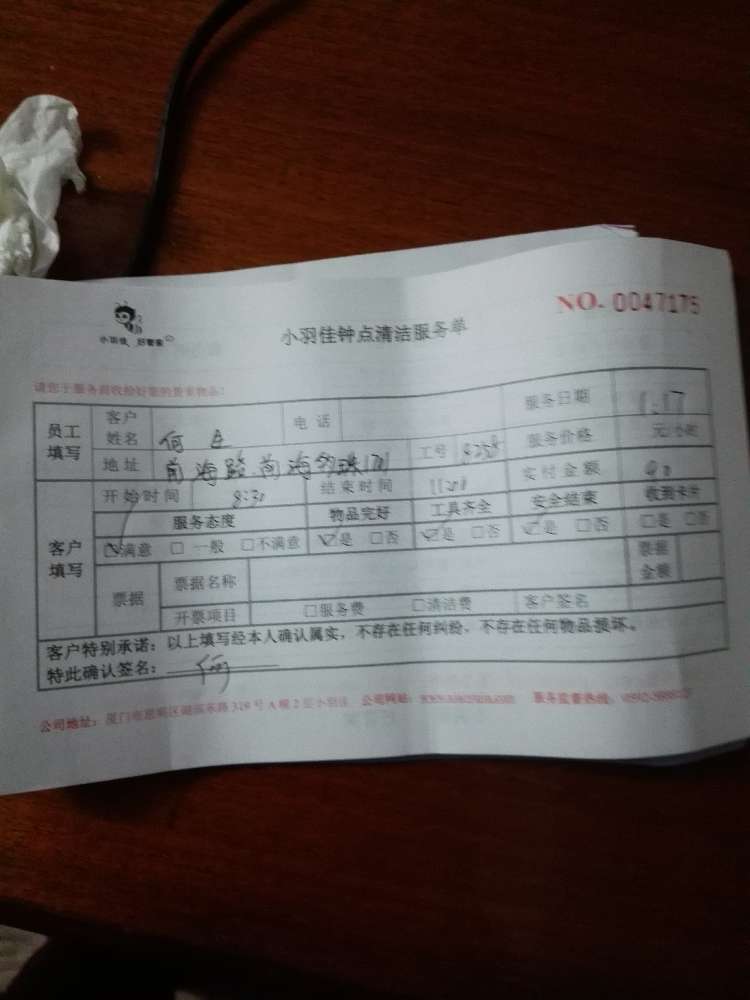 小羽佳 好管家
小羽佳钟点清洁服务单
NO. 0047175
请您于服务前收拾好您的贵重物品!
员工填写 客户姓名 何 电话 服务日期 1.17
地址 前海路前海 工号 服务价格 元/小时
客户填写 开始时间 8:30 结束时间 实付金额
服务态度 物品完好 工具齐全 安全结束 收到卡片
☑满意 □一般 □不满意 ☑是 □否 ☑是 □否 ☑是 □否 □是 □否
票据 票据名称 票据金额
开票项目 □服务费 □清洁费 客户签名
客户特别承诺:以上填写经本人确认属实,不存在任何纠纷,不存在任何物品损坏。
特此确认签名: 何
公司地址:厦门市思明区 东路319号A栋2 小羽佳 公司网站: 服务监督热线: